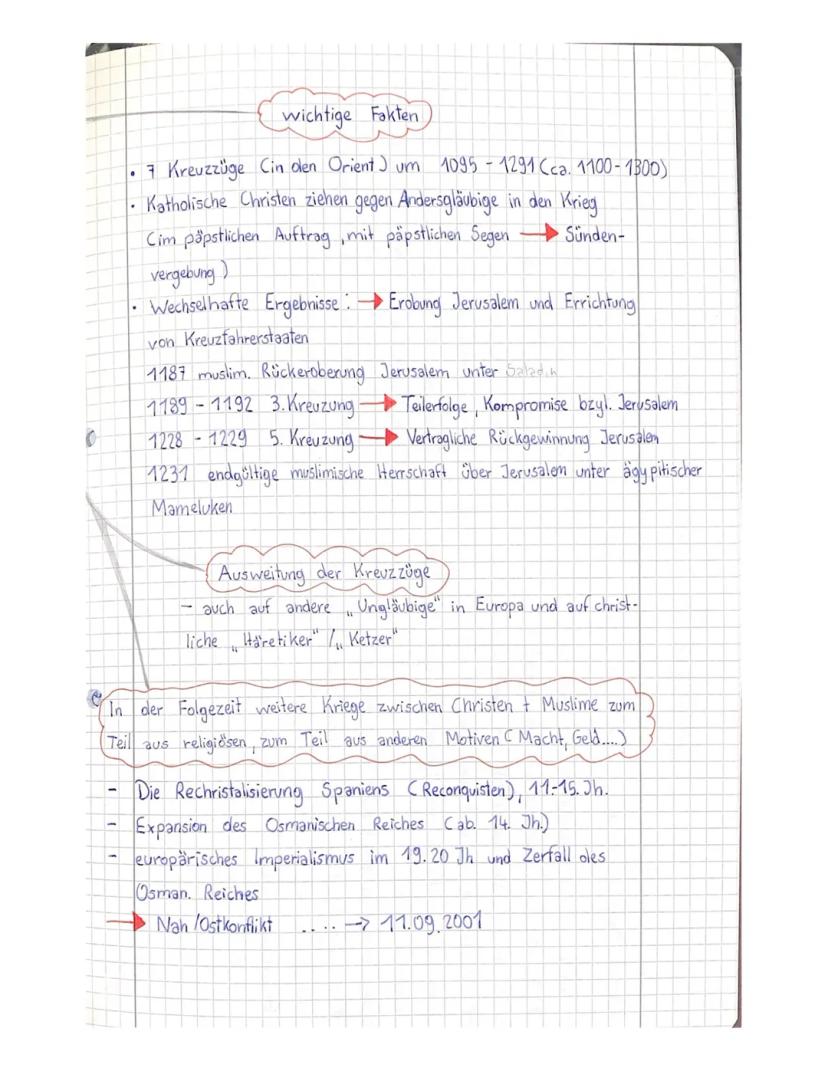 wichtige Fakten
• 7 Kreuzzüge (in den Orient) um 1095 - 1291 (ca. 1100-1300)
• Katholische Christen ziehen gegen Andersgläubige in den Krieg
(im päpstlichen Auftrag, mit päpstlichen Segen → Sünden-
vergebung)
• Wechselhafte Ergebnisse: → Erobung Jerusalem und Errichtung
von Kreuzfahrerstaaten
1187 muslim. Rückeroberung Jerusalem unter Saladin
1189 - 1192 3. Kreuzung → Teilerfolge, Kompromise bzyl. Jerusalem
1228 - 1229 5. Kreuzung → Vertragliche Rückgewinnung Jerusalem
1231 endgültige muslimische Herrschaft über Jerusalem unter ägypitischer
Mameluken
Ausweitung der Kreuzzüge
- auch auf andere „Ungläubige" in Europa und auf christ-
liche „Häretiker" / „Ketzer"
In der Folgezeit weitere Kriege zwischen Christen + Muslime zum
Teil aus religiösen, zum Teil aus anderen Motiven (Macht, Geld....)
- Die Rechristalisierung Spaniens (Reconquisten), 11.-15. Jh.
- Expansion des Osmanischen Reiches (ab. 14. Jh.)
- europärisches Imperialismus im 19. 20 Jh und Zerfall des
Osman. Reiches
→ Nah /Ostkonflikt .... → 11.09.2001